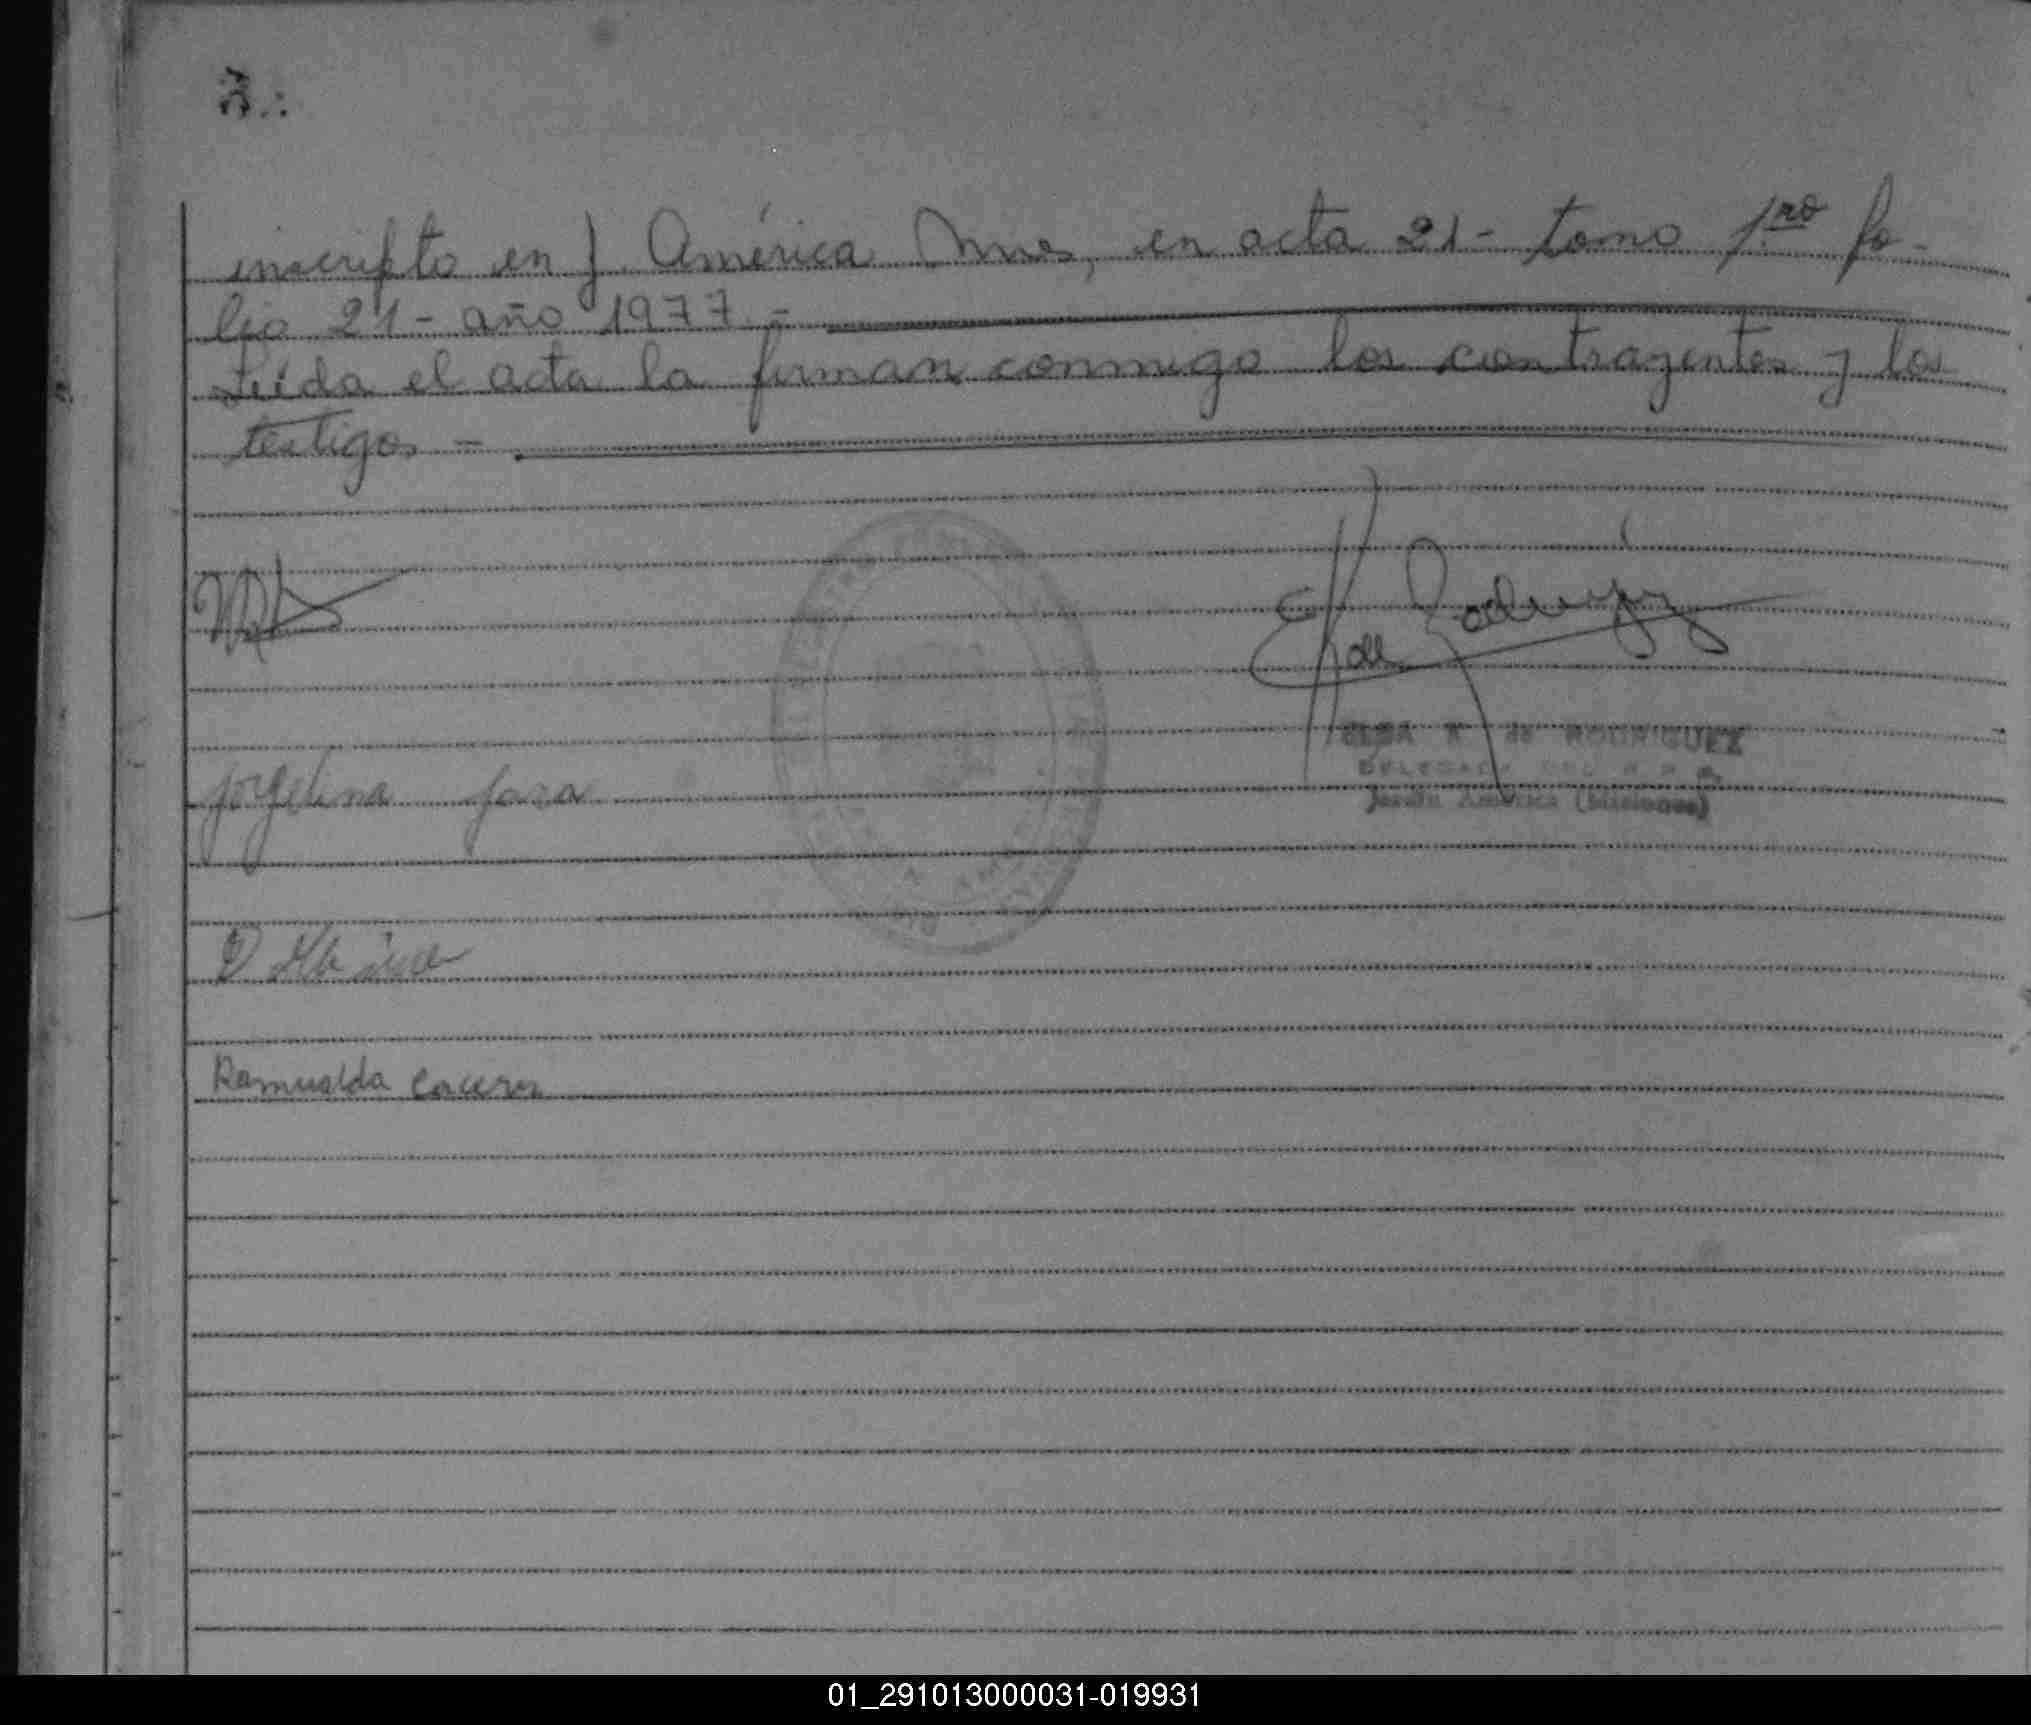 inscripto en J. América Mnes, en acta 21- tomo 1.ro fo-
lio 21- año 1977.-
Leída el acta la firman conmigo los contrayentes y los
testigos.-
E K de Rodríguez
ELSA K de RODRIGUEZ
DELEGADA DEL R P
Jardín América (Misiones)
Jorgelina Jara
Ramualda Caceres
01_291013000031-019931